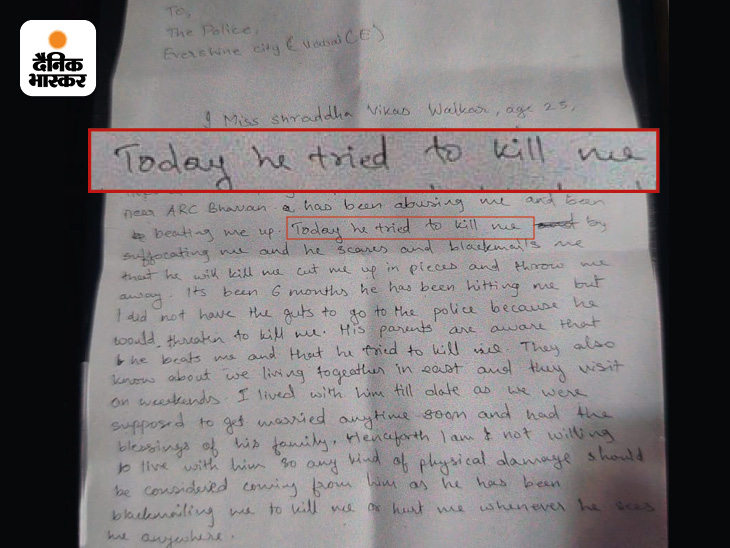 दैनिक
भास्कर
To,
The Police,
Evershine city (Vasai (E)
I Miss Shraddha Vikas Walkar, age 25,
Today he tried to kill me
near ARC Bhavan has been abusing me and been
beating me up. Today he tried to kill me by
suffocating me and he scares and blackmails me
that he will kill me cut me up in pieces and throw me
away. Its been 6 months he has been hitting me but
I did not have the guts to go to the police because he
would threaten to kill me. His parents are aware that
he beats me and that he tried to kill me. They also
know about we living togeather in east and they visit
on weekends. I lived with him till date as we were
supposed to get married anytime soon and had the
blessings of his family. Henceforth I am not willing
to live with him so any kind of physical damage should
be considered coming from him as he has been
blackmailing me to kill me or hurt me whenever he sees
me anywhere.